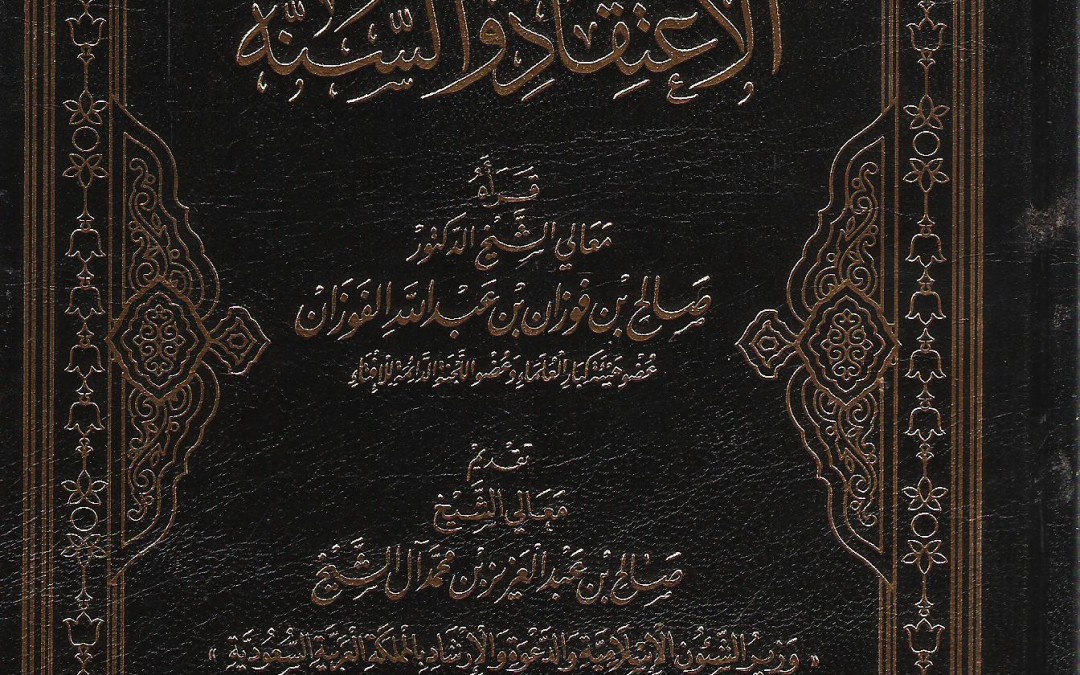 الاعتقاد والسنة
قرأه
معالي الشيخ الدكتور
صالح بن فوزان بن عبد الله الفوزان
عضو هيئة كبار العلماء وعضو اللجنة الدائمة للإفتاء
تقديم
معالي الشيخ
صالح بن عبد العزيز بن محمد آل الشيخ
« وزير الشئون الإسلامية والدعوة والإرشاد بالمملكة العربية السعودية »